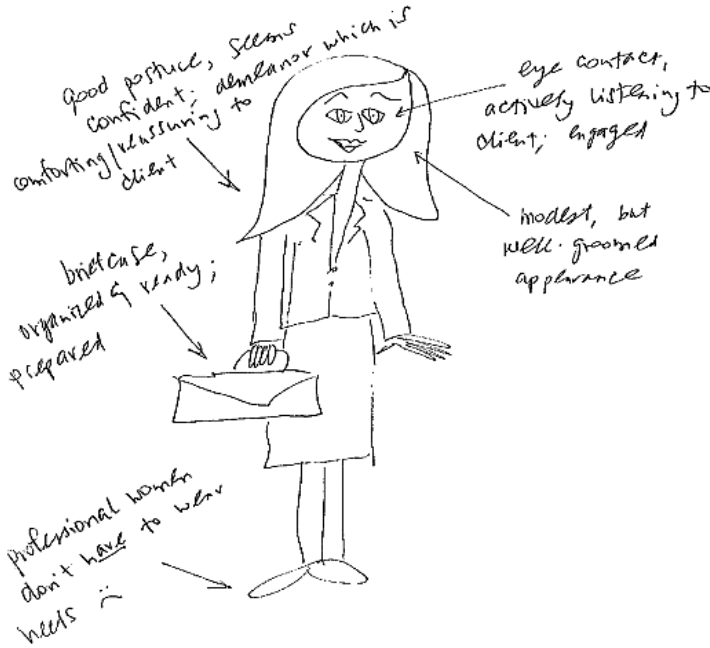 good posture, seems
confident; demeanor which is
comforting/reassuring to
client
eye contact,
actively listening to
client; engaged
modest, but
well-groomed
appearance
briefcase,
organized & ready;
prepared
professional women
don't have to wear
heels :)